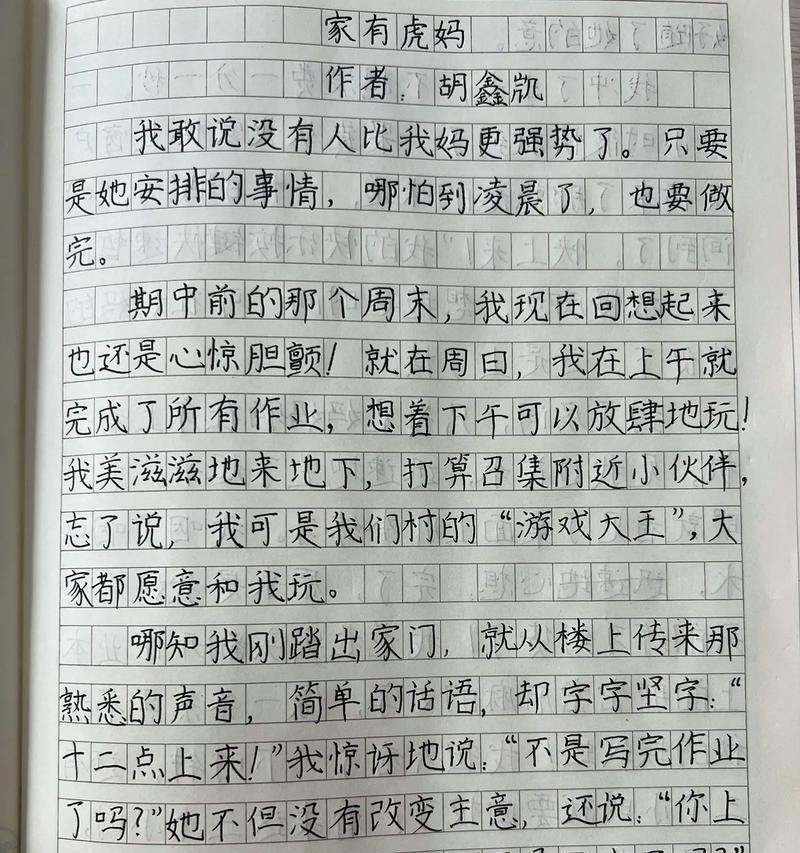 家有虎妈
作者：胡鑫凯
我敢说没有人比我妈更强势了。只要
是她安排的事情，哪怕到凌晨了，也要做
完。
期中前的那个周末，我现在回想起来
也还是心惊胆颤！就在周日，我在上午就
完成了所有作业，想着下午可以放肆地玩！
我美滋滋地来地下，打算召集附近小伙伴，
忘了说，我可是我们村的“游戏大王”，大
家都愿意和我玩。
哪知我刚踏出家门，就从楼上传来那
熟悉的声音，简单的话语，却字字坚字：“
十二点上来！”我惊讶地说：“不是写完作业
了吗？”她不但没有改变主意，还说：“你上